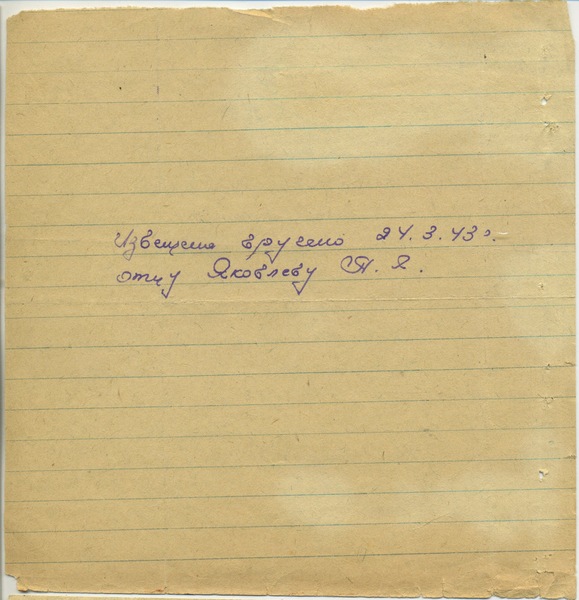 Извещено вручено 24.3.43 г.
отцу Яковлеву П. Я.